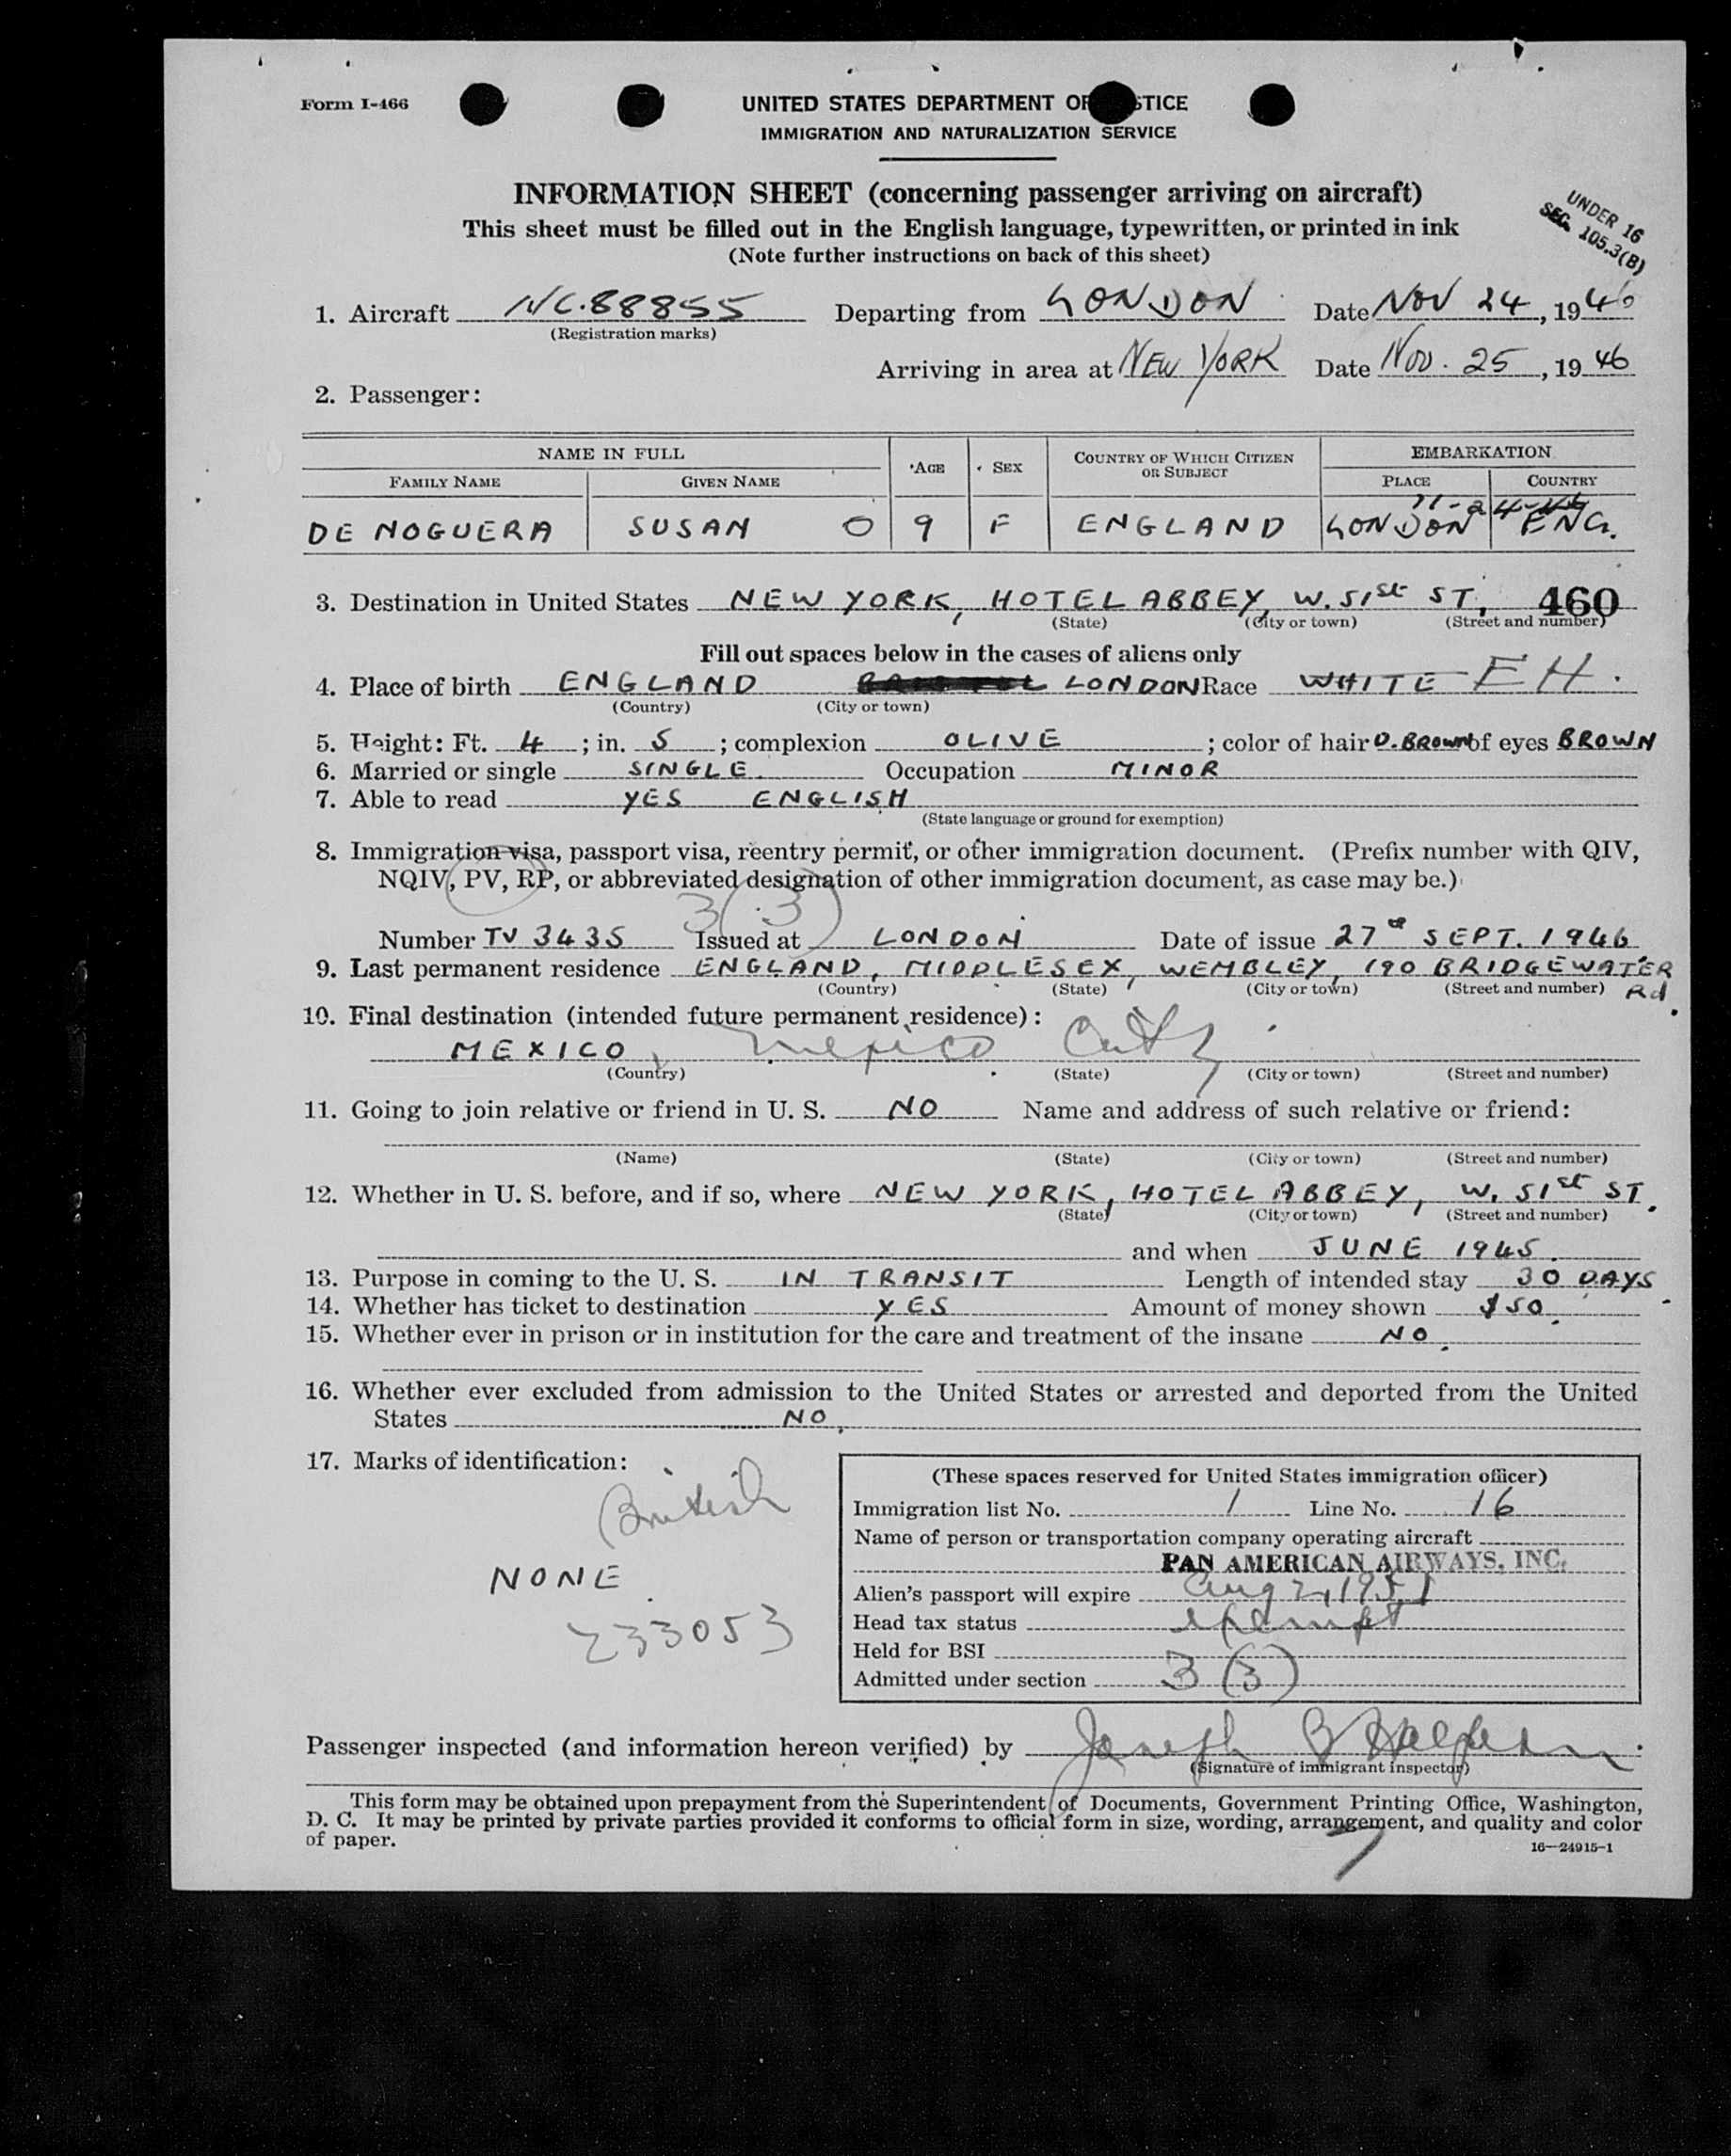 Form I-466
UNITED STATES DEPARTMENT OF JUSTICE
IMMIGRATION AND NATURALIZATION SERVICE
INFORMATION SHEET (concerning passenger arriving on aircraft)
This sheet must be filled out in the English language, typewritten, or printed in ink
(Note further instructions on back of this sheet)
UNDER 16
SEC. 105.3(B)
1. Aircraft NC.88855 Departing from LONDON Date NOV 24, 1946
(Registration marks)
Arriving in area at NEW YORK Date NOV. 25, 1946
2. Passenger:
NAME IN FULL AGE SEX COUNTRY OF WHICH CITIZEN OR SUBJECT EMBARKATION
FAMILY NAME GIVEN NAME PLACE COUNTRY
11-24-46
DE NOGUERA SUSAN O 9 F ENGLAND LONDON ENG.
3. Destination in United States NEW YORK, HOTEL ABBEY, W. 51st ST, 460
(State) (City or town) (Street and number)
Fill out spaces below in the cases of aliens only
4. Place of birth ENGLAND LONDON Race WHITE EH.
(Country) (City or town)
5. Height: Ft. 4; in. 5; complexion OLIVE; color of hair D. BROWN of eyes BROWN
6. Married or single SINGLE. Occupation MINOR
7. Able to read YES ENGLISH
(State language or ground for exemption)
8. Immigration visa, passport visa, reentry permit, or other immigration document. (Prefix number with QIV,
NQIV, PV, RP, or abbreviated designation of other immigration document, as case may be.)
3(3)
Number TV 3435 Issued at LONDON Date of issue 27th SEPT. 1946
9. Last permanent residence ENGLAND, MIDDLESEX, WEMBLEY, 190 BRIDGEWATER Rd.
(Country) (State) (City or town) (Street and number)
10. Final destination (intended future permanent residence):
MEXICO, Mexico City
(Country) (State) (City or town) (Street and number)
11. Going to join relative or friend in U. S. NO Name and address of such relative or friend:
(Name) (State) (City or town) (Street and number)
12. Whether in U. S. before, and if so, where NEW YORK, HOTEL ABBEY, W. 51st ST.
(State) (City or town) (Street and number)
and when JUNE 1945.
13. Purpose in coming to the U. S. IN TRANSIT Length of intended stay 30 DAYS.
14. Whether has ticket to destination YES Amount of money shown $50.
15. Whether ever in prison or in institution for the care and treatment of the insane NO.
16. Whether ever excluded from admission to the United States or arrested and deported from the United
States NO.
17. Marks of identification:
British
NONE.
233053
(These spaces reserved for United States immigration officer)
Immigration list No. 1 Line No. 16
Name of person or transportation company operating aircraft
PAN AMERICAN AIRWAYS, INC.
Alien's passport will expire Aug 2, 1951
Head tax status exempt
Held for BSI
Admitted under section 3(3)
Passenger inspected (and information hereon verified) by Joseph B Halpern
(Signature of immigrant inspector)
This form may be obtained upon prepayment from the Superintendent of Documents, Government Printing Office, Washington,
D. C. It may be printed by private parties provided it conforms to official form in size, wording, arrangement, and quality and color
of paper.
16—24915-1